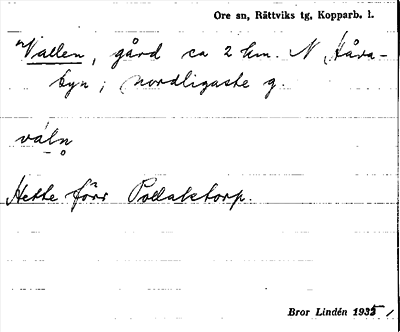 Ore sn, Rättviks tg, Kopparb. l.
Vallen, gård ca 2 km. N Håra-
byn; nordligaste g.
váln̥
Hette förr Pollaktorp.
Bror Lindén 1935